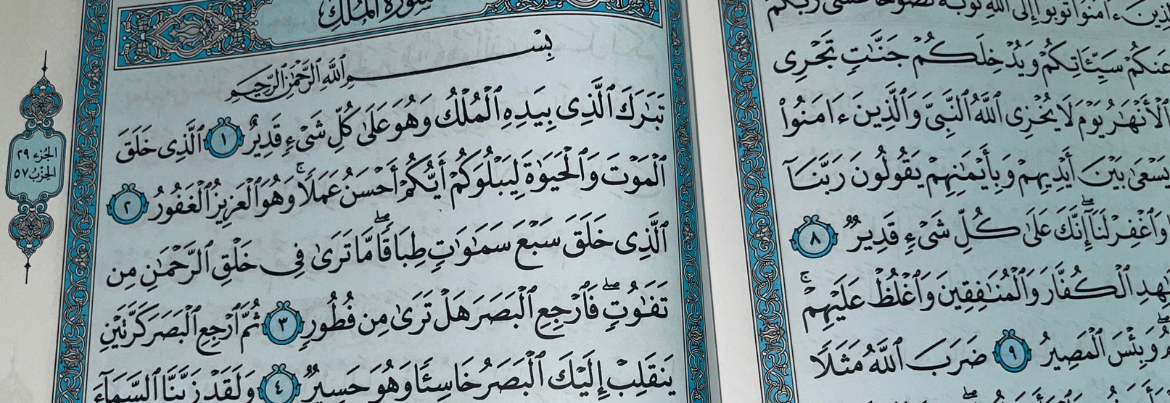 ءَامَنُوا۟ تُوبُوٓا۟ إِلَى ٱللَّهِ تَوْبَةً نَّصُوحًا عَسَىٰ رَبُّكُمْ
عَنكُمْ سَيِّـَٔاتِكُمْ وَيُدْخِلَكُمْ جَنَّـٰتٍ تَجْرِى
ٱلْأَنْهَـٰرُ يَوْمَ لَا يُخْزِى ٱللَّهُ ٱلنَّبِىَّ وَٱلَّذِينَ ءَامَنُوا۟
يَسْعَىٰ بَيْنَ أَيْدِيهِمْ وَبِأَيْمَـٰنِهِمْ يَقُولُونَ رَبَّنَآ
وَٱغْفِرْ لَنَآ ۖ إِنَّكَ عَلَىٰ كُلِّ شَىْءٍ قَدِيرٌ ٨
ٱلْكُفَّارَ وَٱلْمُنَـٰفِقِينَ وَٱغْلُظْ عَلَيْهِمْ ۚ
وَبِئْسَ ٱلْمَصِيرُ ٩ ضَرَبَ ٱللَّهُ مَثَلًا
سُورَةُ المُلْكِ
بِسْمِ ٱللَّهِ ٱلرَّحْمَـٰنِ ٱلرَّحِيمِ
تَبَـٰرَكَ ٱلَّذِى بِيَدِهِ ٱلْمُلْكُ وَهُوَ عَلَىٰ كُلِّ شَىْءٍ قَدِيرٌ ١ ٱلَّذِى خَلَقَ
ٱلْمَوْتَ وَٱلْحَيَوٰةَ لِيَبْلُوَكُمْ أَيُّكُمْ أَحْسَنُ عَمَلًا ۚ وَهُوَ ٱلْعَزِيزُ ٱلْغَفُورُ ٢
ٱلَّذِى خَلَقَ سَبْعَ سَمَـٰوَٰتٍ طِبَاقًا ۖ مَّا تَرَىٰ فِى خَلْقِ ٱلرَّحْمَـٰنِ مِن
تَفَـٰوُتٍ ۖ فَٱرْجِعِ ٱلْبَصَرَ هَلْ تَرَىٰ مِن فُطُورٍ ٣ ثُمَّ ٱرْجِعِ ٱلْبَصَرَ كَرَّتَيْنِ
يَنقَلِبْ إِلَيْكَ ٱلْبَصَرُ خَاسِئًا وَهُوَ حَسِيرٌ ٤ وَلَقَدْ زَيَّنَّا ٱلسَّمَآءَ
الجزء ٢٩
الحزب ٥٧